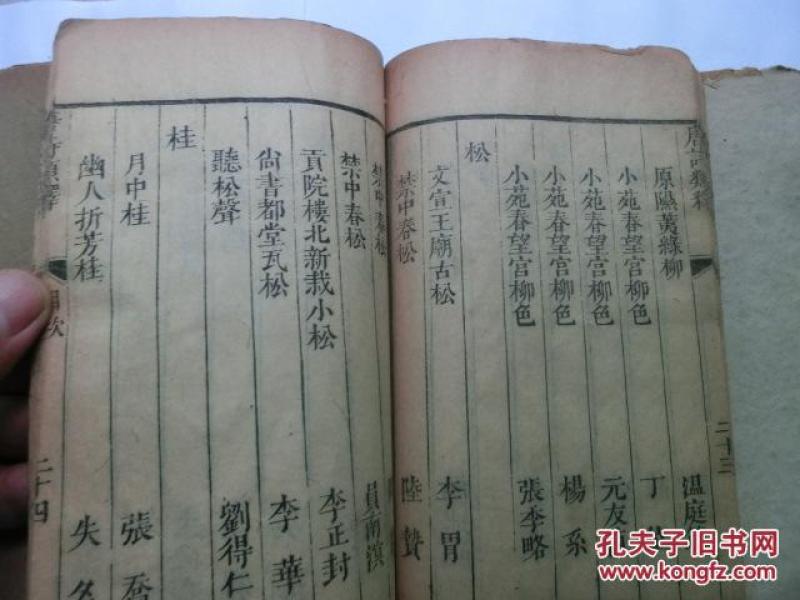 原隰荑綠柳 溫庭
小苑春望宮柳色 丁
小苑春望宮柳色 元友
小苑春望宮柳色 楊系
小苑春望宮柳色 張季略
松
文宣王廟古松 李胃
禁中春松 陸贄
二十三
禁中春松
禁中春松 員南溟
貢院樓北新栽小松 李正封
尚書都堂瓦松 李華
聽松聲 劉得仁
桂
月中桂 張喬
幽人折芳桂 失名
目次
二十四
孔夫子旧书网
www.kongfz.com